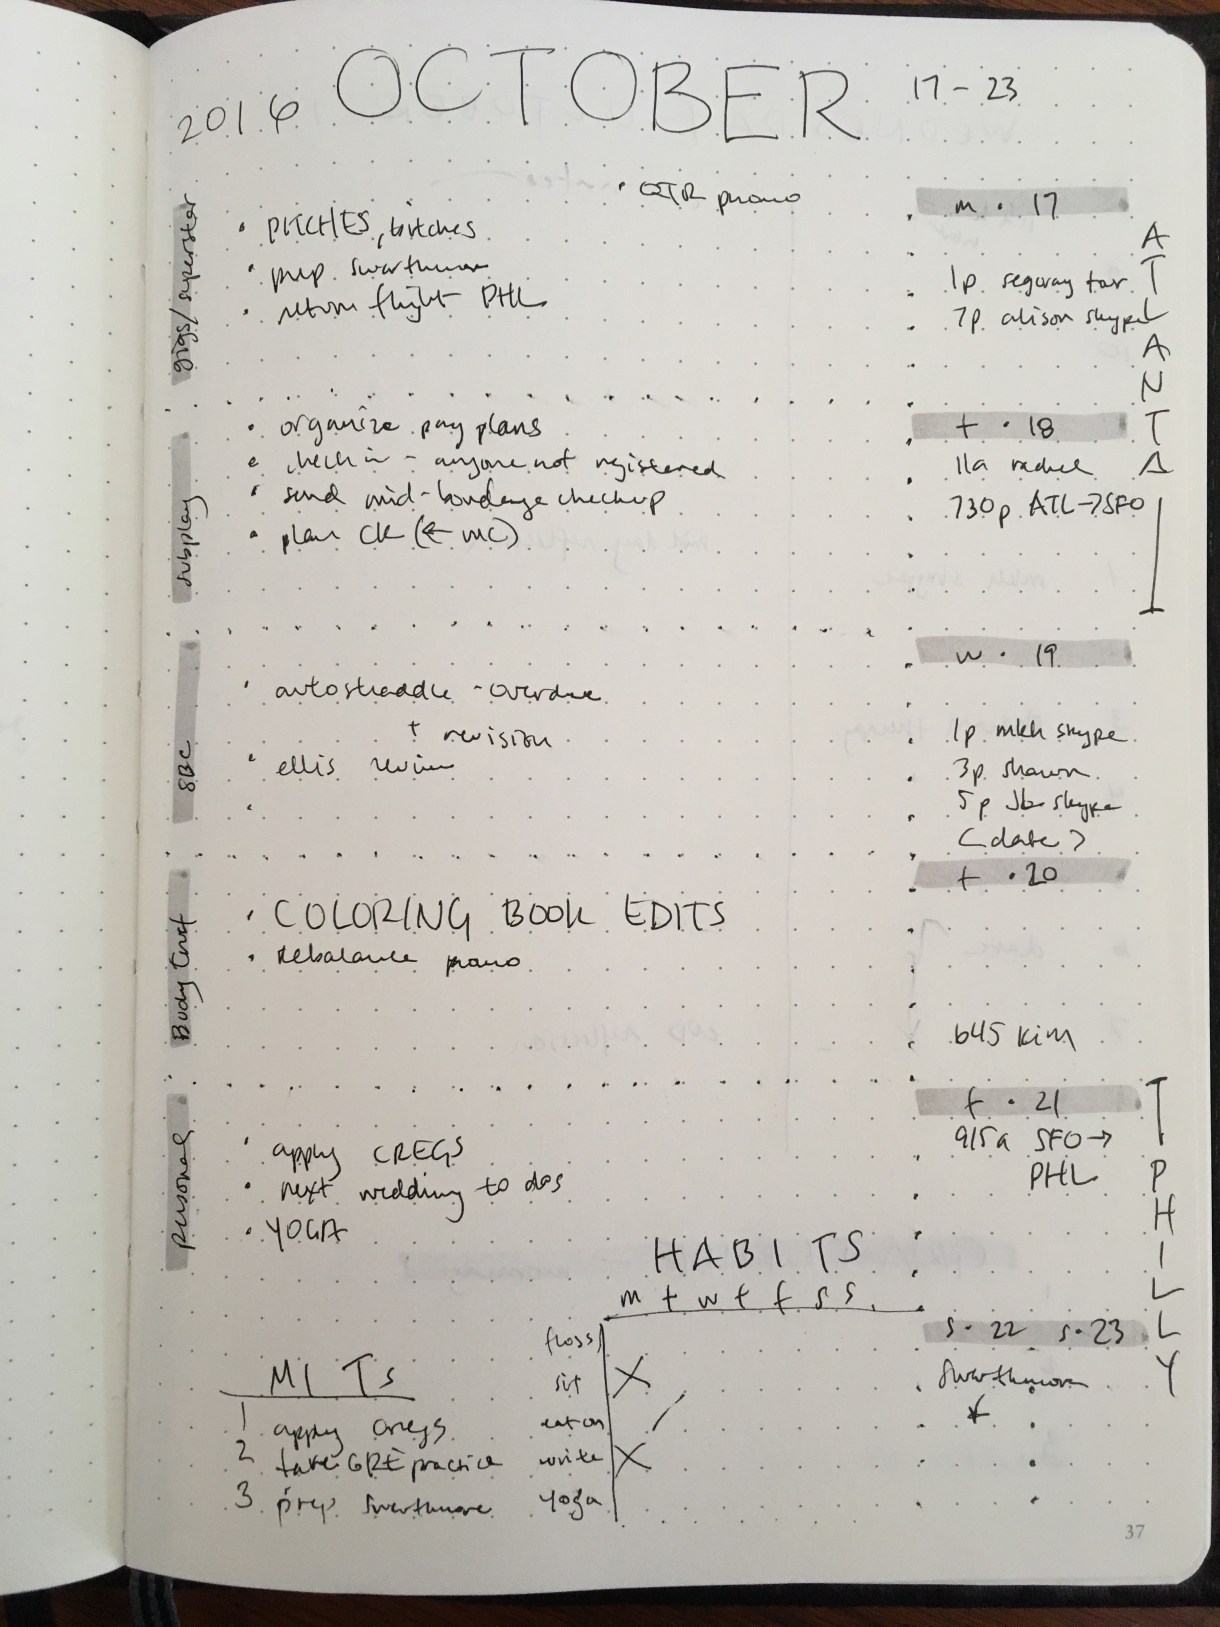 2016 OCTOBER 17 - 23
gigs/superstar
• promo
• PITCHES, bitches
• prep swarthmore
• return flight PHL
subplay
• organize pay plans
• check in - anyone not registered
• send mid-bondage checkup
• plan CK (← MC)
SBC
• autostraddle - overdue
+ revision
• ellis review
•
Body trust
• COLORING BOOK EDITS
• Rebalance promo
personal
• apply CREGS
• next wedding to dos
• YOGA
m • 17
1p segway tour
7p alison skype
ATLANTA
t • 18
11a rachel
730p ATL→SFO
w • 19
1p mkh skype
3p shawn
5p Jb skype
(date?)
t • 20
645 Kim
f • 21
915a SFO→
PHL
PHILLY
s • 22 s • 23
Swarthmore
HABITS
m t w t f s s
floss
sit X
eat on /
write X
yoga
MITs
1 apply cregs
2 take GRE practice
3 prep Swarthmore
37